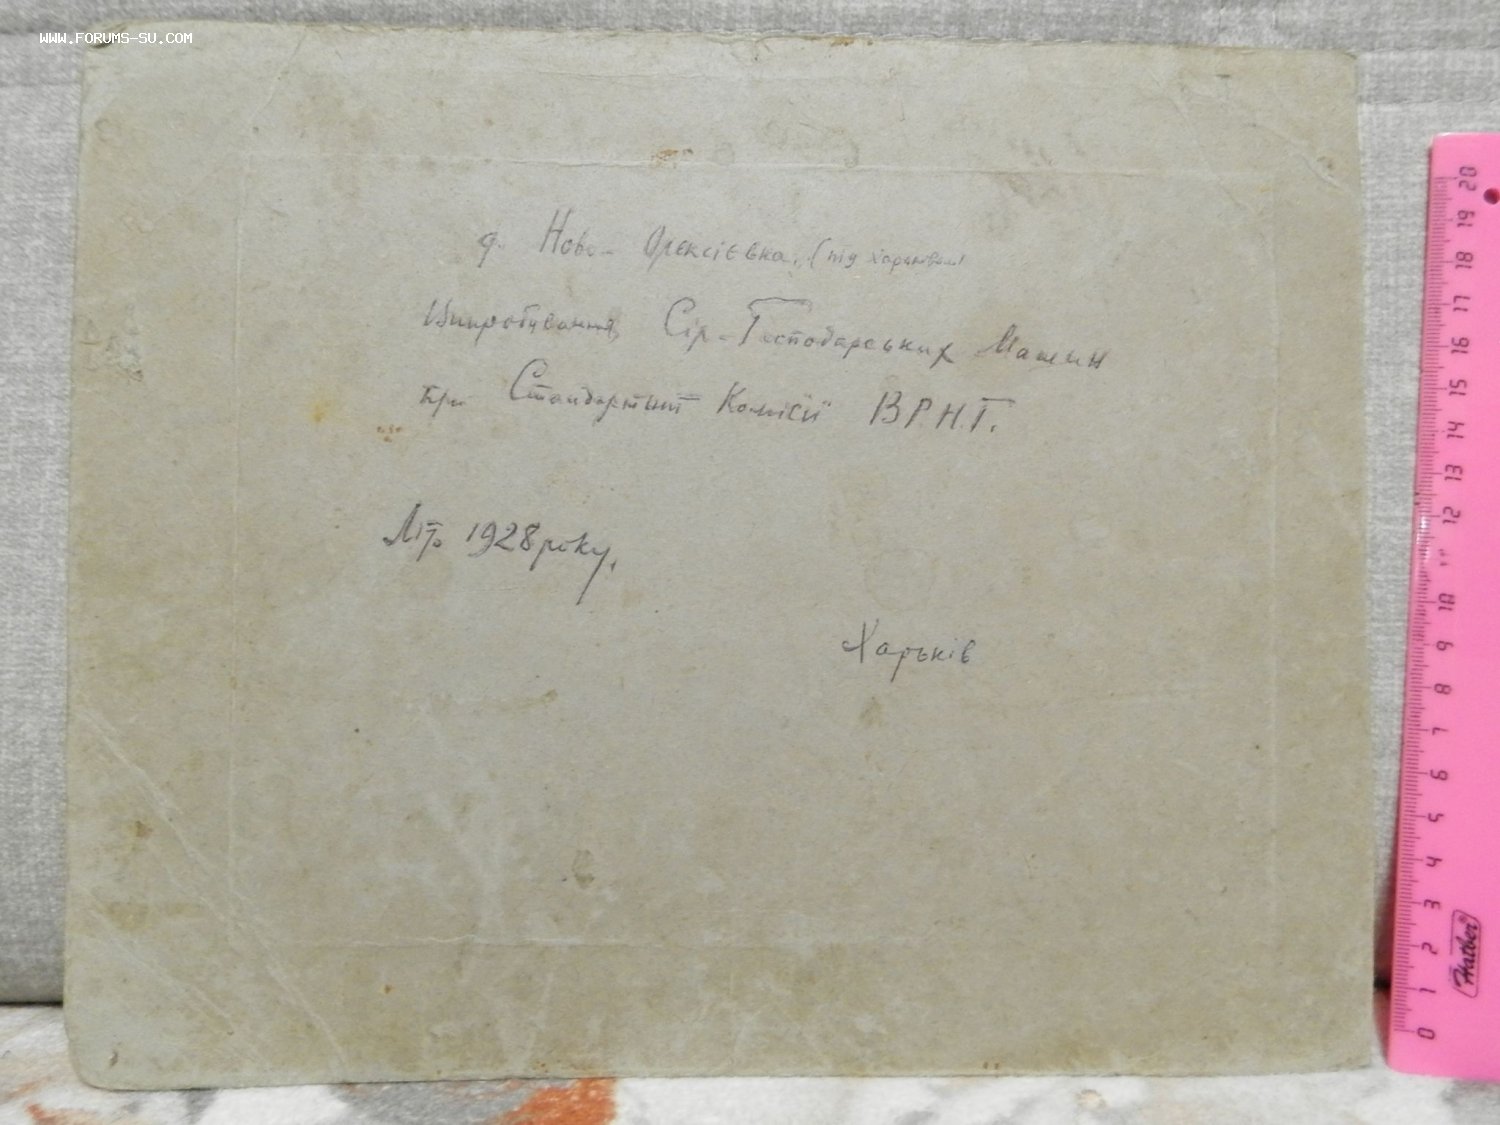 WWW.FORUMS-SU.COM
д. Ново-Олексієвка. (під Харьковом)
Випробування Сір-Господарських Машин
при Стандартній Комісії В.Р.Н.Г.
Літо 1928 року.
Харьків
20 19 18 17 16 15 14 13 12 11 10 9 8 7 6 5 4 3 2 1 0
Hatber